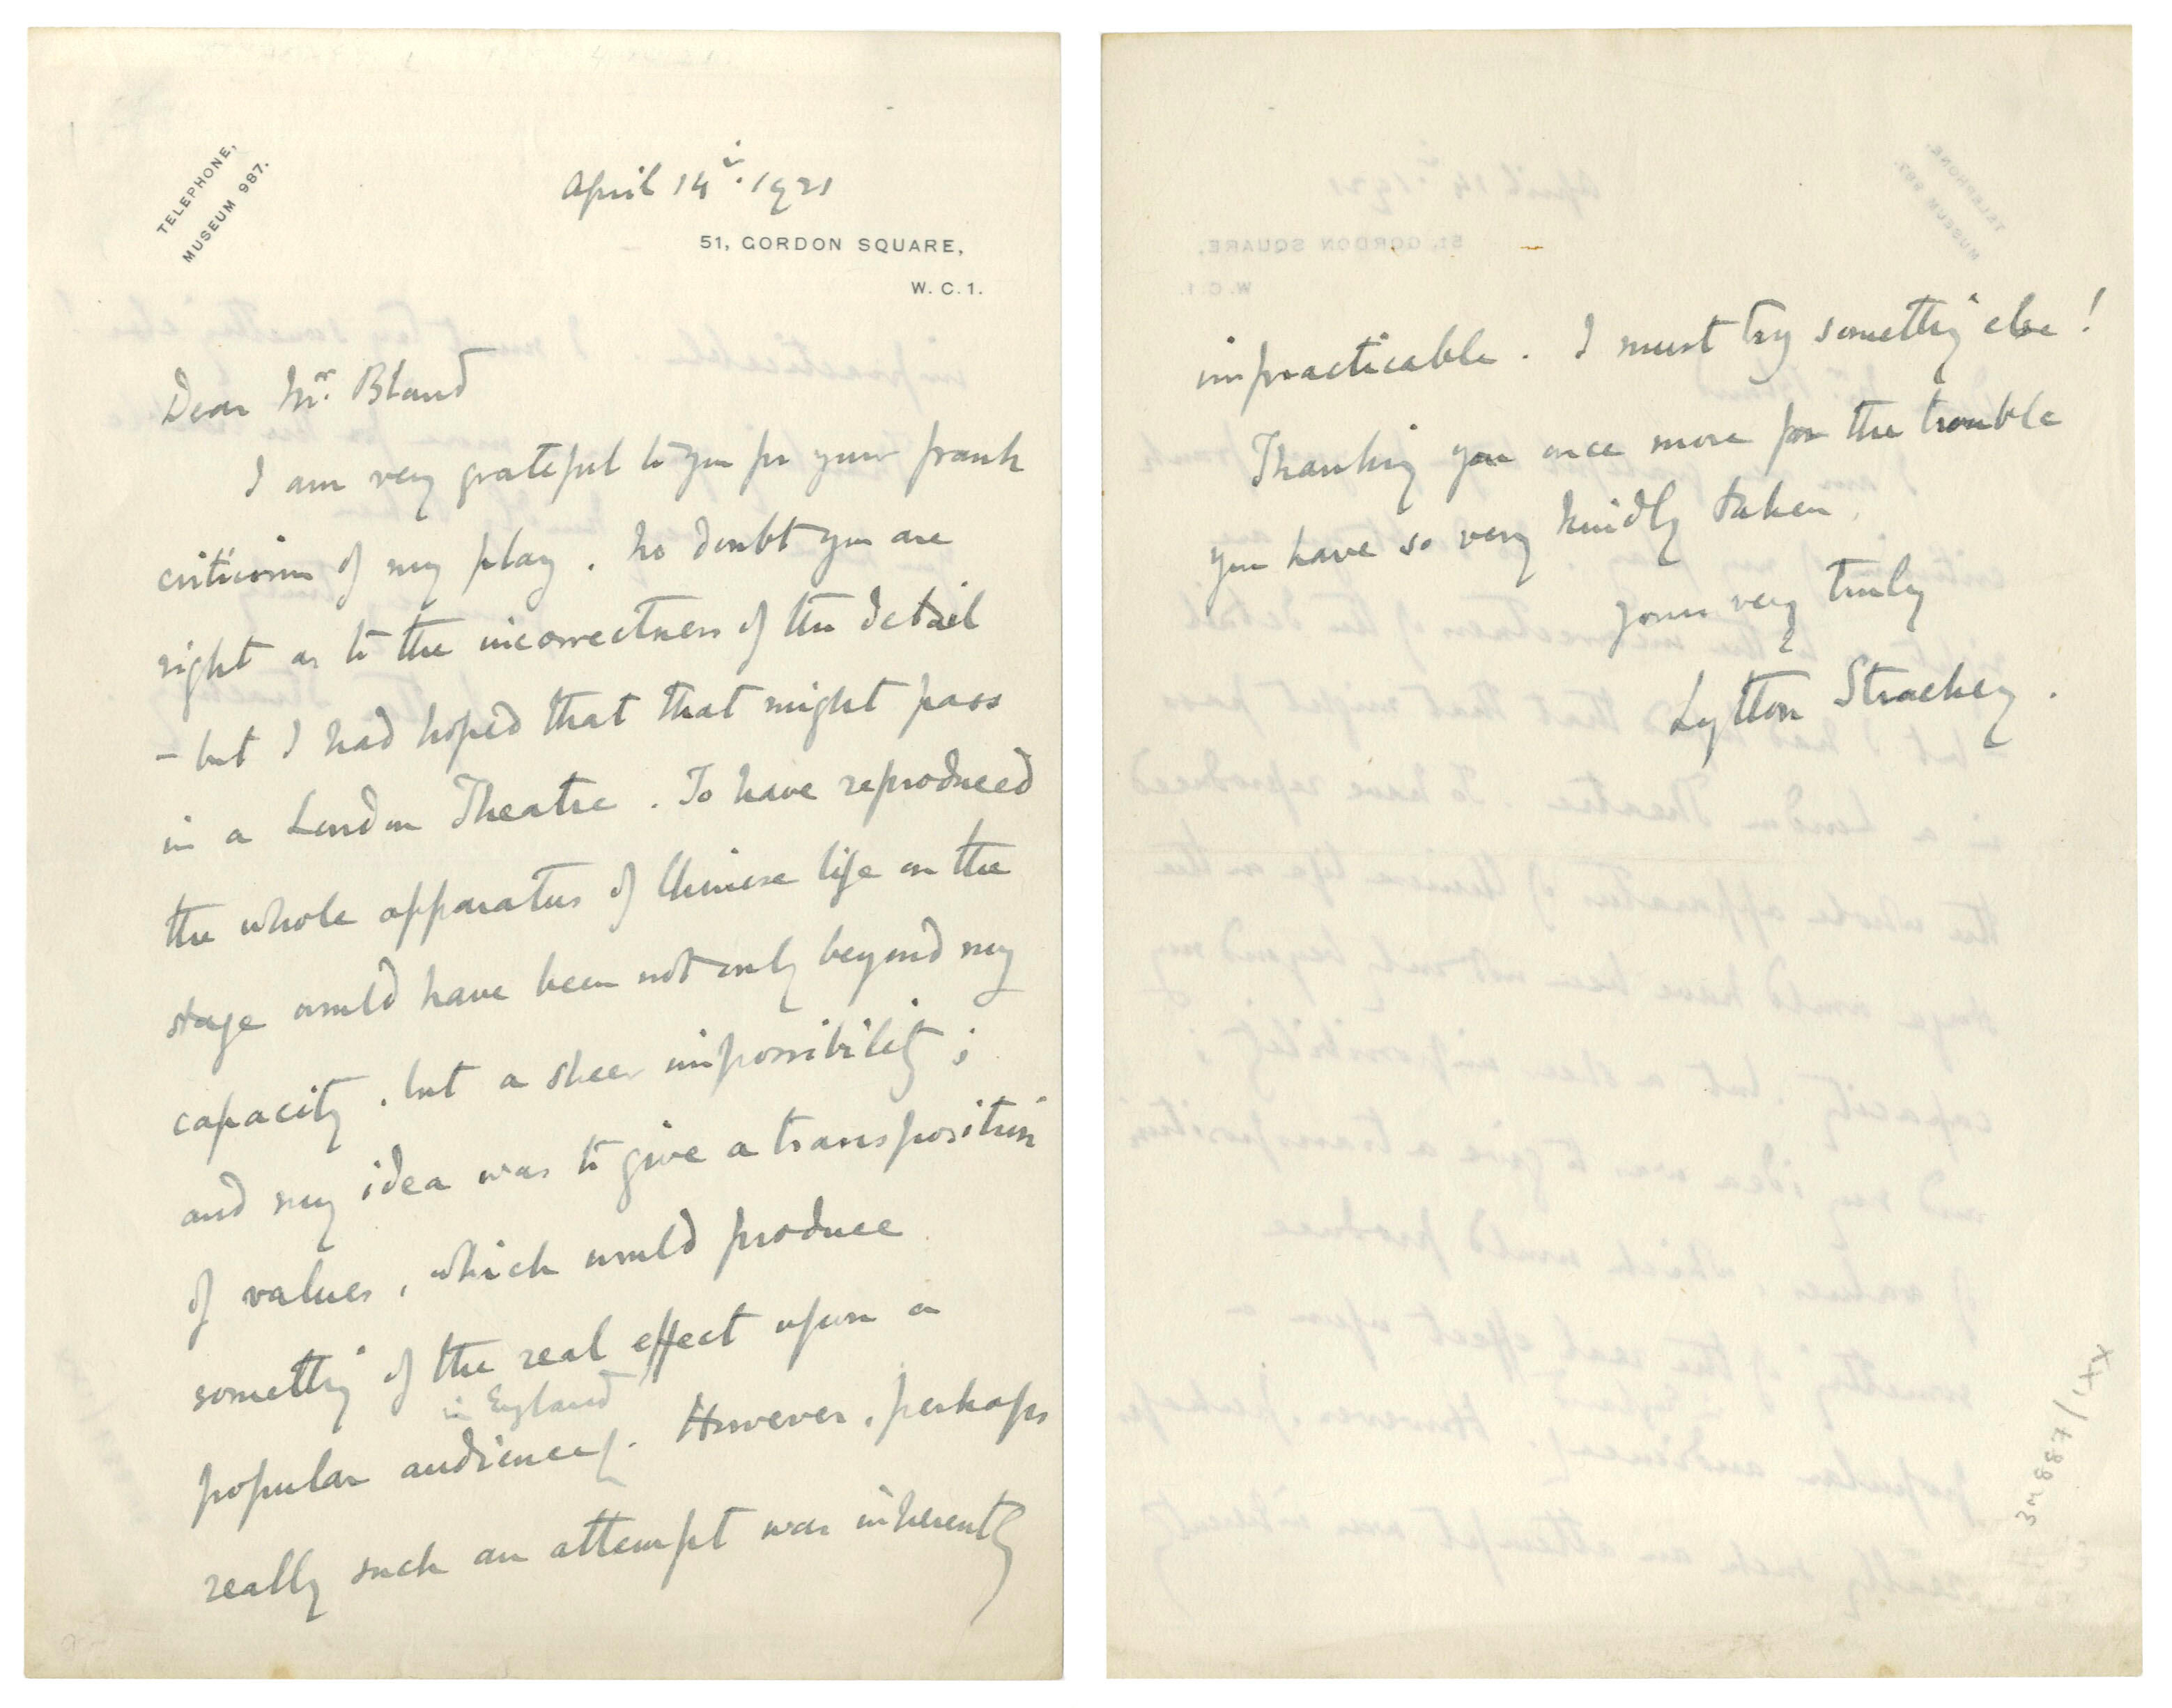 TELEPHONE,
MUSEUM 987.
April 14th. 1921
51, GORDON SQUARE,
W. C. 1.
Dear Mr. Bland
I am very grateful to you for your frank
criticism of my play. No doubt you are
right as to the incorrectness of the detail
– but I had hoped that that might pass
in a London Theatre. To have reproduced
the whole apparatus of Chinese life on the
stage would have been not only beyond my
capacity, but a sheer impossibility;
and my idea was to give a transposition
of values, which would produce
something of the real effect upon a
in England
popular audience. However, perhaps
really such an attempt was inherently
impracticable. I must try something else!
Thanking you once more for the trouble
you have so very kindly taken,
yours very truly
Lytton Strachey.